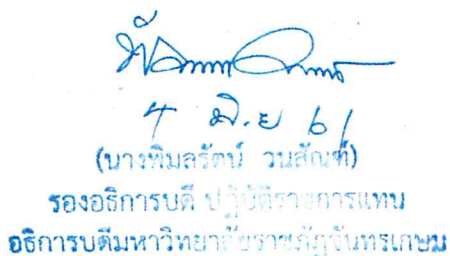 4 มิ.ย 61
(นางพิมลรัตน์ วนสัณฑ์)
รองอธิการบดี ปฏิบัติราชการแทน
อธิการบดีมหาวิทยาลัยราชภัฏจันทรเกษม